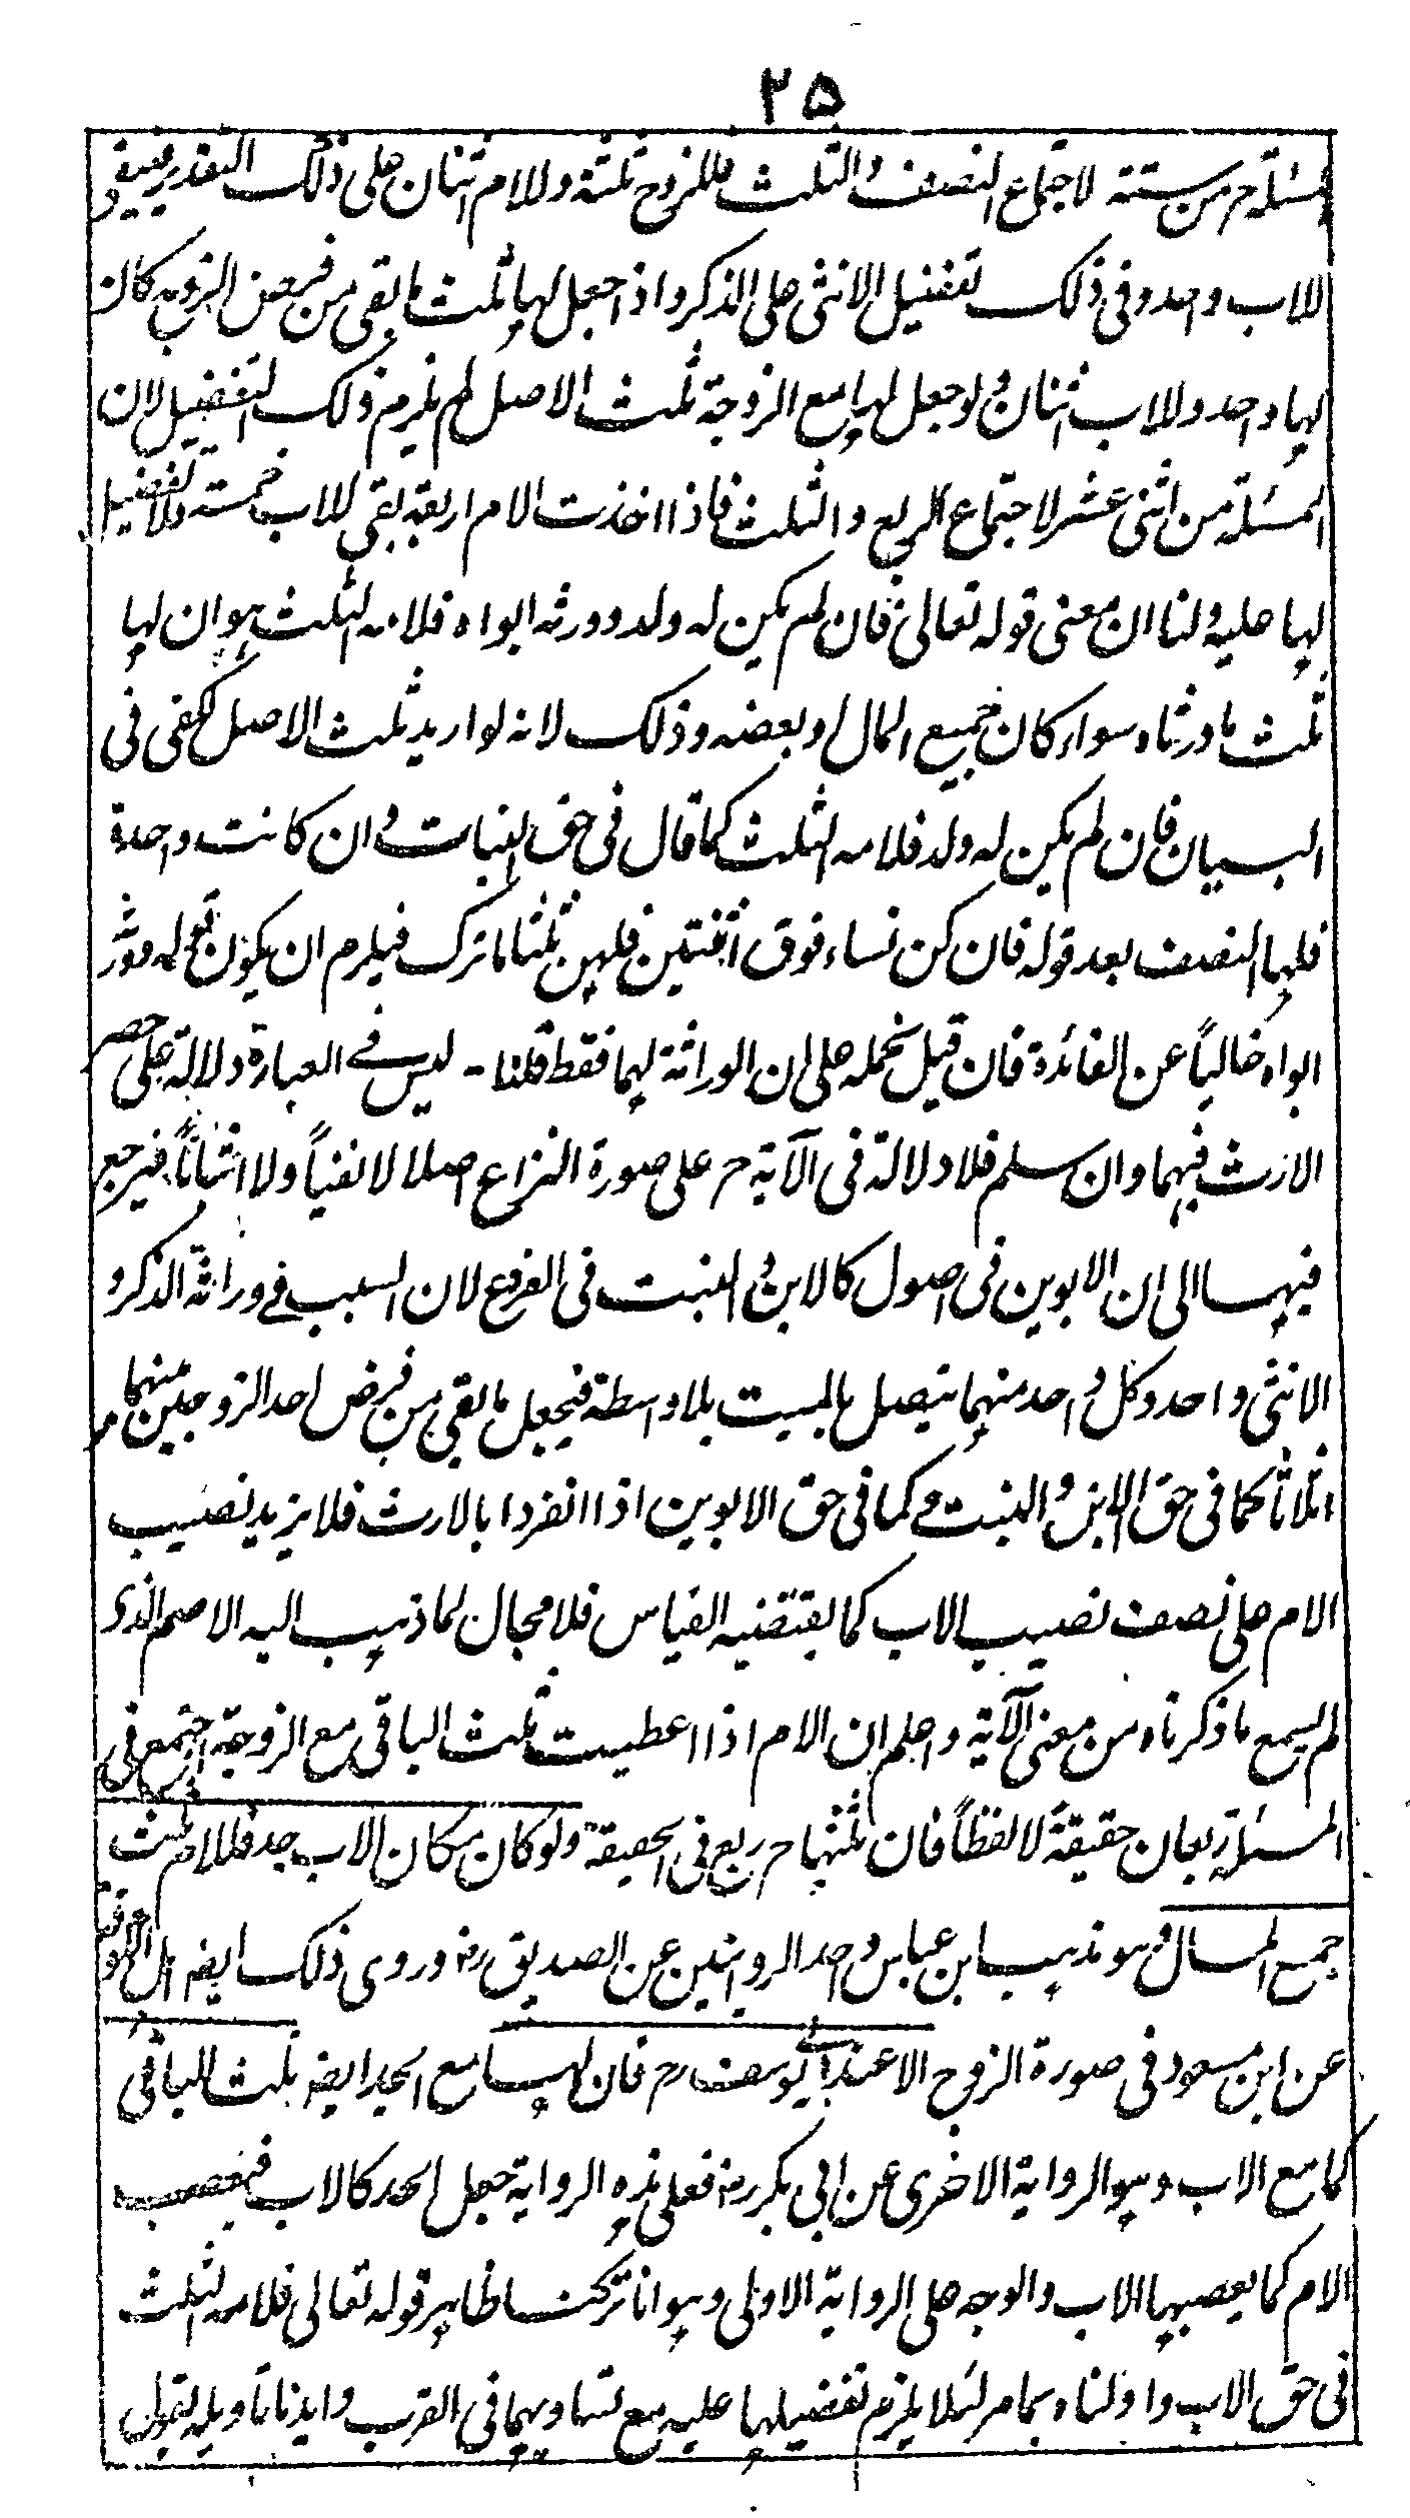 ٢٥
المسئلة ح من ستة لاجتماع النصف والثلث فللزوج ثلثة وللام اثنان على ذلك التقدير فيبقى
للاب واحد وفى ذلك تفضيل الانثى على الذكر واذا جعل لها ثلث ما بقى من فرض الزوج كان
لها واحد وللاب اثنان ولو جعل لها مع الزوجة ثلث الاصل لم يلزم ذلك التفضيل لان
المسئلة من اثنى عشر لاجتماع الربع والثلث فاذا اخذت الام اربعة بقى للاب خمسة فلا تفضيل
لها عليه ولنا ان معنى قوله تعالى فان لم يكن له ولد وورثه ابواه فلامه الثلث هو ان لها
ثلث ما ورثاه سواء كان جميع المال او بعضه وذلك لانه لو اريد ثلث الاصل لكفى فى
البيان فان لم يكن له ولد فلامه الثلث كما قال فى حق البنات وان كانت واحدة
فلها النصف بعد قوله فان كن نساء فوق اثنتين فلهن ثلثا ما ترك فيلزم ان يكون قوله وورثه
ابواه خاليا عن الفائدة فان قيل نحمله على ان الوراثة لهما فقط قلنا - ليس فى العبارة دلالة على حصر
الارث فيهما وان سلم فلا دلالة فى الآية ح على صورة النزاع اصلا لا نفياً ولا اثباتاً فيرجع
فيها الى ان الابوين فى اصول كالابن والبنت فى الفروع لان السبب فى وراثة الذكر و
الانثى واحد وكل واحد منهما يتصل بالميت بلا واسطة فيجعل ما بقى من فرض احد الزوجين منهما
اثلاثا كما فى حق الابن والبنت وكما فى حق الابوين اذا انفردا بالارث فلا يزيد نصيب
الام على نصف نصيب الاب كما يقتضيه القياس فلا مجال لما ذهب اليه الاصم الذى
لم يسمع ما ذكرناه من معنى الآية واعلم ان الام اذا اعطيت ثلث الباقى مع الزوجة اجتمع فى
المسئلة ربعان حقيقةً لا لفظاً فان ثلثها ح ربع فى الحقيقة ولو كان مكان الاب جد فللام ثلث
جميع المال وهو مذهب ابن عباس واحد الروايتين عن الصديق رض وروى ذلك ايضا اهل الكوفة
عن ابن مسعود فى صورة الزوج الا عند ابى يوسف رح فان لها مع الجد ايضا ثلث الباقى
كما مع الاب وهو الرواية الاخرى عن ابى بكر رض فعلى هذه الرواية جعل الجد كالاب فيعصب
الام كما يعصبها الاب والوجه على الرواية الاولى وهو انا تركنا ظاهر قوله تعالى فلامه الثلث
فى حق الاب واولناه بما مر لئلا يلزم تفضيلها عليه مع تساويهما فى القرب وايدنا تاويله بقول